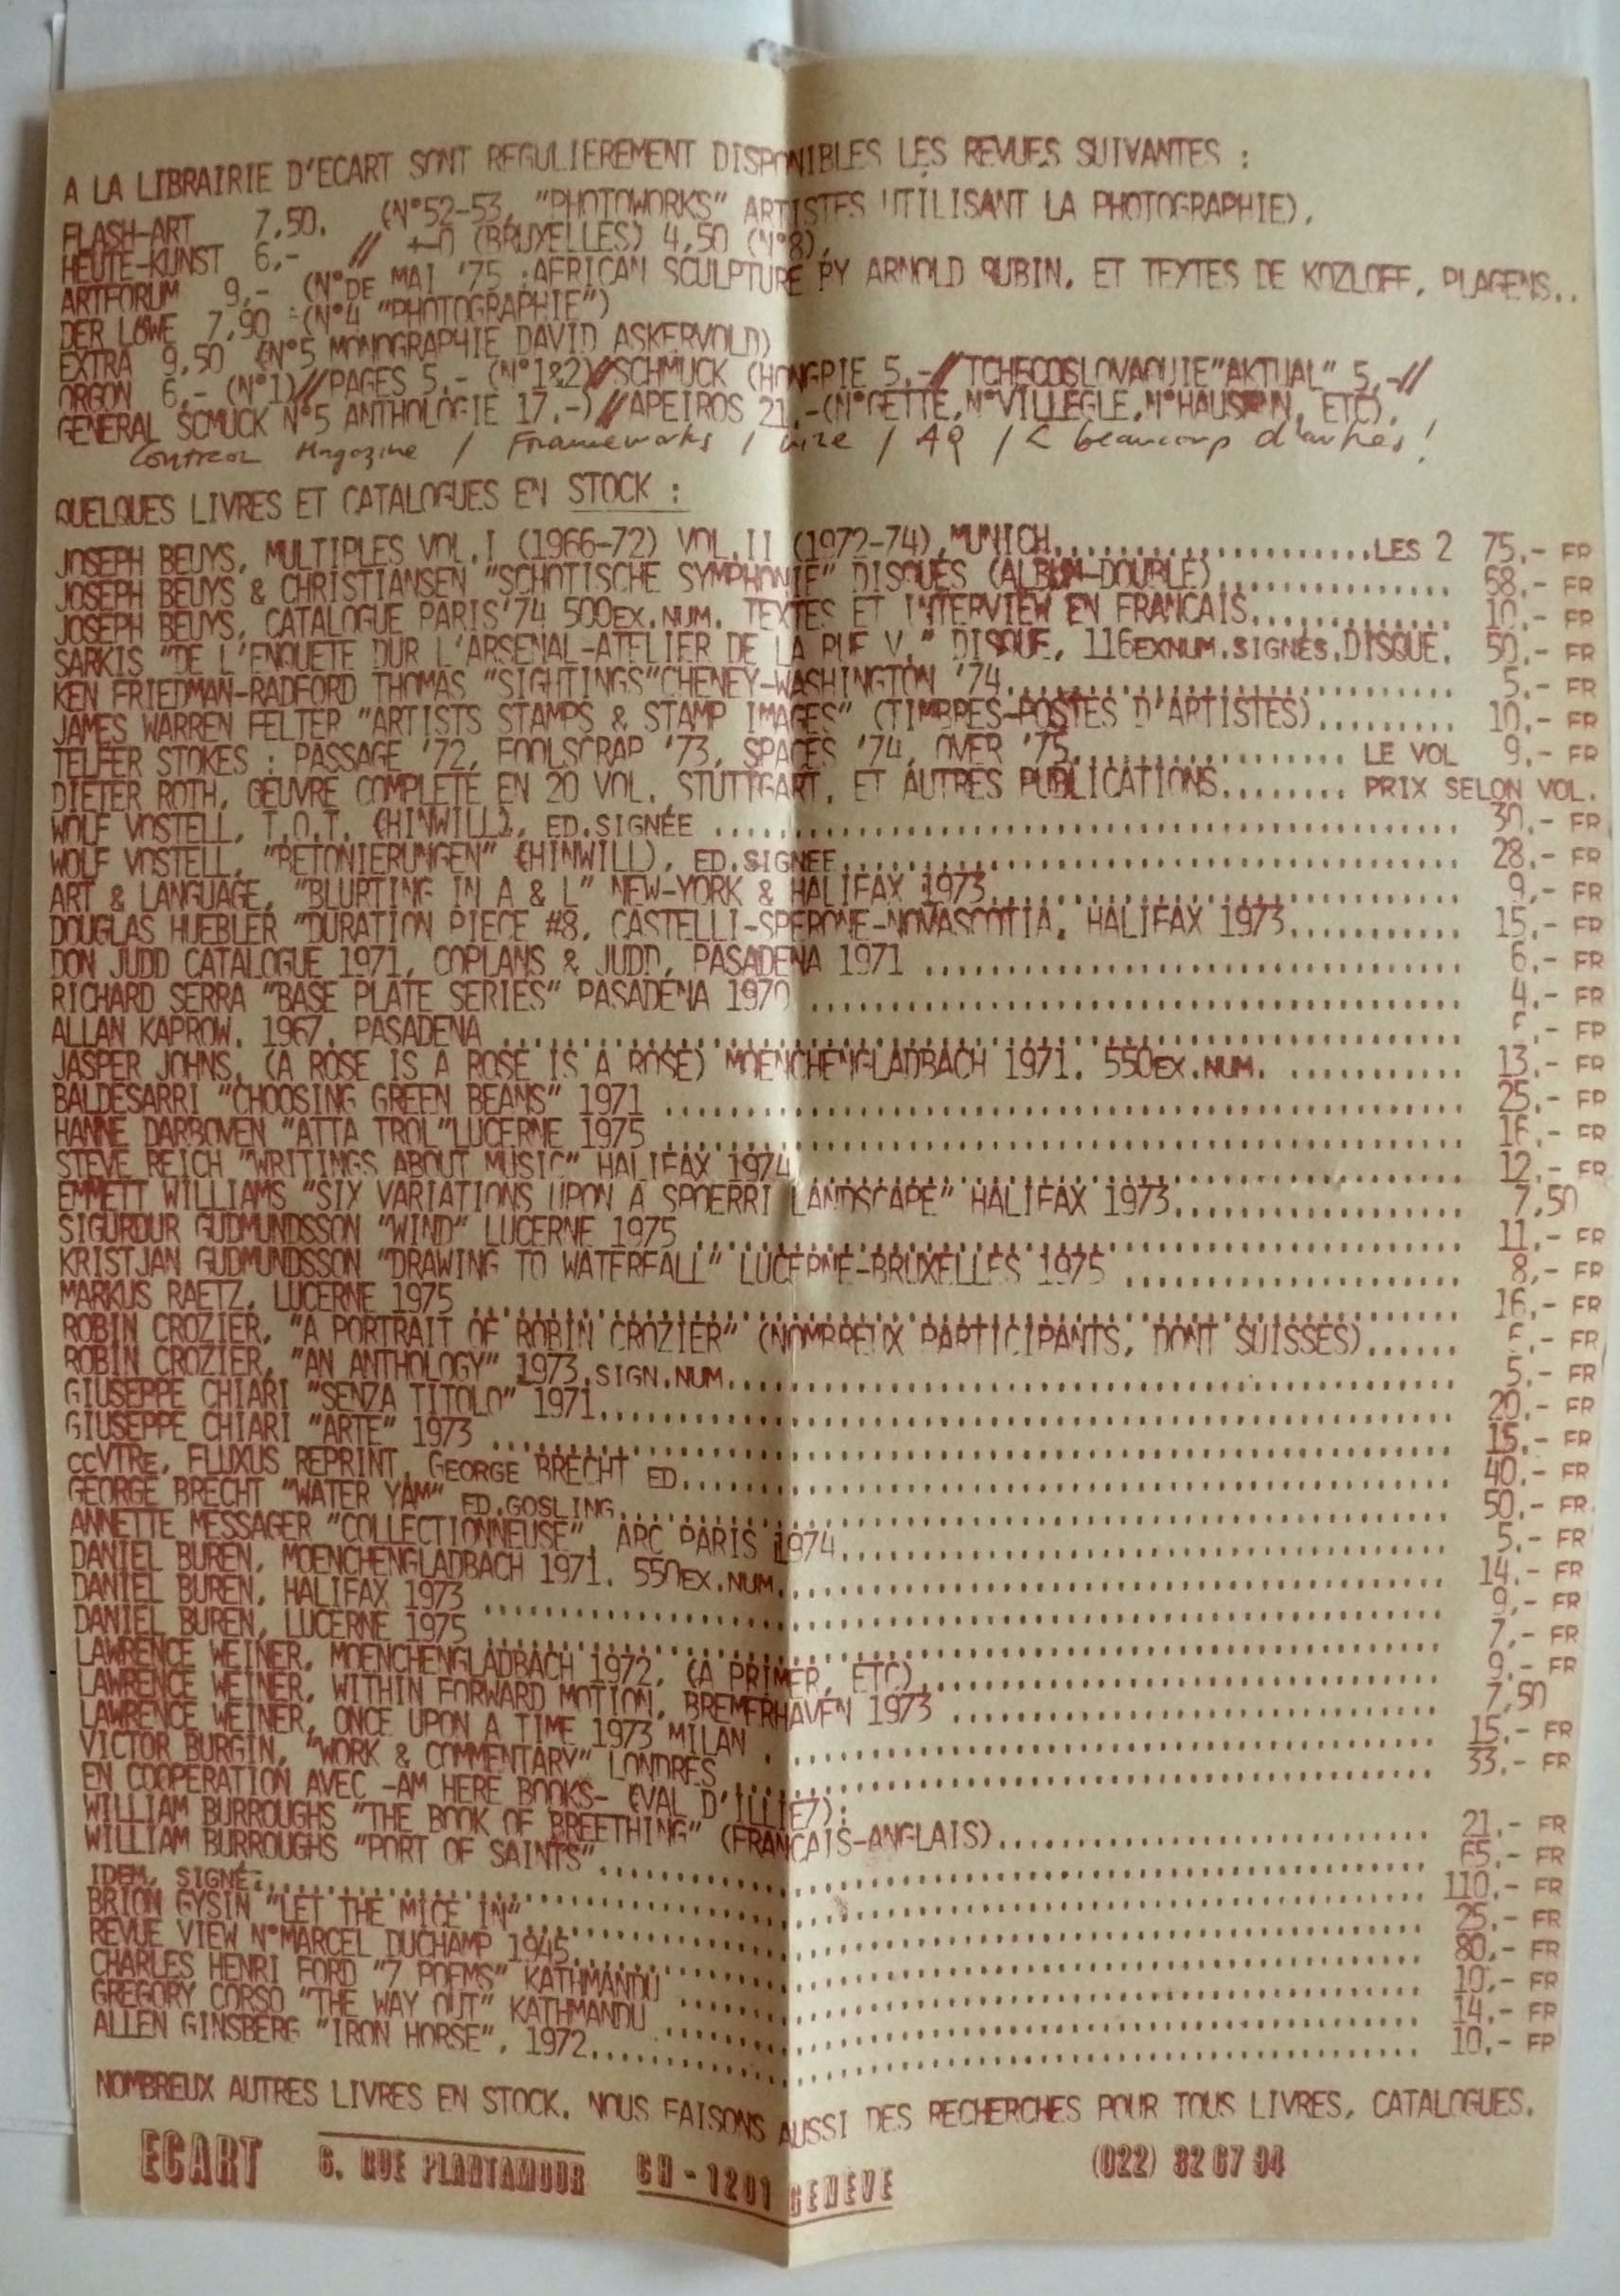 A LA LIBRAIRIE D'ECART SONT REGULIEREMENT DISPONIBLES LES REVUES SUIVANTES :
FLASH-ART 7,50. (N°52-53, "PHOTOWORKS" ARTISTES UTILISANT LA PHOTOGRAPHIE),
HEUTE-KUNST 6,- // +-0 (BRUXELLES) 4,50 (N°8),
ARTFORUM 9,- (N°DE MAI '75 :AFRICAN SCULPTURE BY ARNOLD RUBIN, ET TEXTES DE KOZLOFF, PLAGENS..
DER LÖWE 7,90 (N°4 "PHOTOGRAPHIE")
EXTRA 9,50 (N°5 MONOGRAPHIE DAVID ASKERVOLD)
ORGON 6,- (N°1)//PAGES 5,- (N°1&2)//SCHMUCK (HONGRIE 5,-//TCHECOSLOVAQUIE"AKTUAL" 5,-//
GENERAL SCMUCK N°5 ANTHOLOGIE 17,-)//APEIROS 21,-(N°GETTE,N°VILLEGLE,N°HAUSMAN, ETC),
Control Magazine / Frameworks / / AQ / & beaucoup d'autres!
QUELQUES LIVRES ET CATALOGUES EN STOCK :
JOSEPH BEUYS, MULTIPLES VOL.I (1966-72) VOL.II (1972-74),MUNICH....................LES 2 75,- FR
JOSEPH BEUYS & CHRISTIANSEN "SCHOTISCHE SYMPHONIE" DISQUES (ALBUM-DOUBLE)............... 68,- FR
JOSEPH BEUYS, CATALOGUE PARIS'74 500EX.NUM. TEXTES ET INTERVIEW EN FRANCAIS............. 10,- FR
SARKIS "DE L'ENQUETE DUR L'ARSENAL-ATELIER DE LA RUE V." DISQUE, 116EXNUM.SIGNÉS.DISQUE. 50,- FR
KEN FRIEDMAN-RADFORD THOMAS "SIGHTINGS"CHENEY-WASHINGTON '74............................ 5,- FR
JAMES WARREN FELTER "ARTISTS STAMPS & STAMP IMAGES" (TIMBRES-POSTES D'ARTISTES)......... 10,- FR
TELFER STOKES : PASSAGE '72, FOOLSCRAP '73, SPACES '74, OVER '75................. LE VOL 9,- FR
DIETER ROTH, OEUVRE COMPLETE EN 20 VOL. STUTTGART, ET AUTRES PUBLICATIONS........ PRIX SELON VOL.
WOLF VOSTELL, T.O.T. (HINWILL), ED.SIGNÉE .............................................. 30,- FR
WOLF VOSTELL, "BETONIERUNGEN" (HINWILL), ED.SIGNEE...................................... 28,- FR
ART & LANGUAGE, "BLURTING IN A & L" NEW-YORK & HALIFAX 1973............................. 9,- FR
DOUGLAS HUEBLER "DURATION PIECE #8, CASTELLI-SPERONE-NOVASCOTIA, HALIFAX 1973........... 15,- FR
DON JUDD CATALOGUE 1971, COPLANS & JUDD, PASADENA 1971 ................................. 6,- FR
RICHARD SERRA "BASE PLATE SERIES" PASADENA 1970 ........................................ 4,- FR
ALLAN KAPROW, 1967, PASADENA ........................................................... ,- FR
JASPER JOHNS, (A ROSE IS A ROSE IS A ROSE) MOENCHENGLADBACH 1971. 550EX.NUM. ........... 13,- FR
BALDESARRI "CHOOSING GREEN BEANS" 1971 ................................................. 25,- FR
HANNE DARBOVEN "ATTA TROL"LUCERNE 1975 ................................................. 16,- FR
STEVE REICH "WRITINGS ABOUT MUSIC" HALIFAX 1974......................................... 12,- FR
EMMETT WILLIAMS "SIX VARIATIONS UPON A SPOERRI LANDSCAPE" HALIFAX 1973.................. 7,50
SIGURDUR GUDMUNDSSON "WIND" LUCERNE 1975 ............................................... 11,- FR
KRISTJAN GUDMUNDSSON "DRAWING TO WATERFALL" LUCERNE-BRUXELLES 1975 ..................... 8,- FR
MARKUS RAETZ, LUCERNE 1975 ............................................................. 16,- FR
ROBIN CROZIER, "A PORTRAIT OF ROBIN CROZIER" (NOMBREUX PARTICIPANTS, DONT SUISSES)...... ,- FR
ROBIN CROZIER, "AN ANTHOLOGY" 1973,SIGN.NUM............................................. 5,- FR
GIUSEPPE CHIARI "SENZA TITOLO" 1971..................................................... 20,- FR
GIUSEPPE CHIARI "ARTE" 1973 ............................................................ 15,- FR
CCVTRE, FLUXUS REPRINT, GEORGE BRECHT ED................................................ 40,- FR
GEORGE BRECHT "WATER YAM" ED.GOSLING.................................................... 50,- FR
ANNETTE MESSAGER "COLLECTIONNEUSE", ARC PARIS 1974...................................... 5,- FR
DANIEL BUREN, MOENCHENGLADBACH 1971. 550EX.NUM.......................................... 14,- FR
DANIEL BUREN, HALIFAX 1973 ............................................................. 9,- FR
DANIEL BUREN, LUCERNE 1975 ............................................................. 7,- FR
LAWRENCE WEINER, MOENCHENGLADBACH 1972, (A PRIMER, ETC)................................. 9,- FR
LAWRENCE WEINER, WITHIN FORWARD MOTION, BREMERHAVEN 1973 ............................... 7,50
LAWRENCE WEINER, ONCE UPON A TIME 1973 MILAN ........................................... 15,- FR
VICTOR BURGIN, "WORK & COMMENTARY" LONDRES ............................................. 33,- FR
EN COOPERATION AVEC -AM HERE BOOKS- (VAL D'ILLIEZ):
WILLIAM BURROUGHS "THE BOOK OF BREETHING" (FRANCAIS-ANGLAIS)............................ 21,- FR
WILLIAM BURROUGHS "PORT OF SAINTS"...................................................... 65,- FR
IDEM, SIGNÉ:............................................................................ 110,- FR
BRION GYSIN "LET THE MICE IN"........................................................... 25,- FR
REVUE VIEW N°MARCEL DUCHAMP 1945........................................................ 80,- FR
CHARLES HENRI FORD "7 POEMS" KATHMANDU ................................................. 10,- FR
GREGORY CORSO "THE WAY OUT" KATHMANDU .................................................. 14,- FR
ALLEN GINSBERG "IRON HORSE", 1972....................................................... 10,- FR
NOMBREUX AUTRES LIVRES EN STOCK. NOUS FAISONS AUSSI DES RECHERCHES POUR TOUS LIVRES, CATALOGUES.
ECART 6, RUE PLANTAMOUR CH-1201 GENEVE (022) 32 67 94